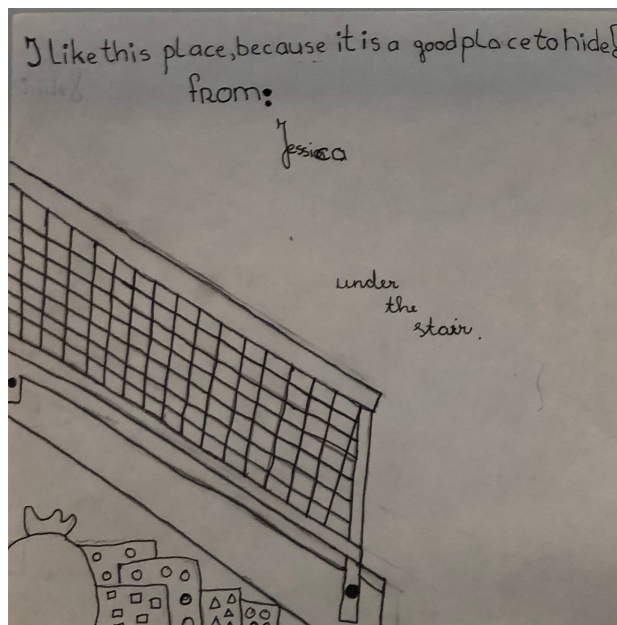 I Like this place, because it is a good place to hide!
from:
Jessica
under
the
stair.